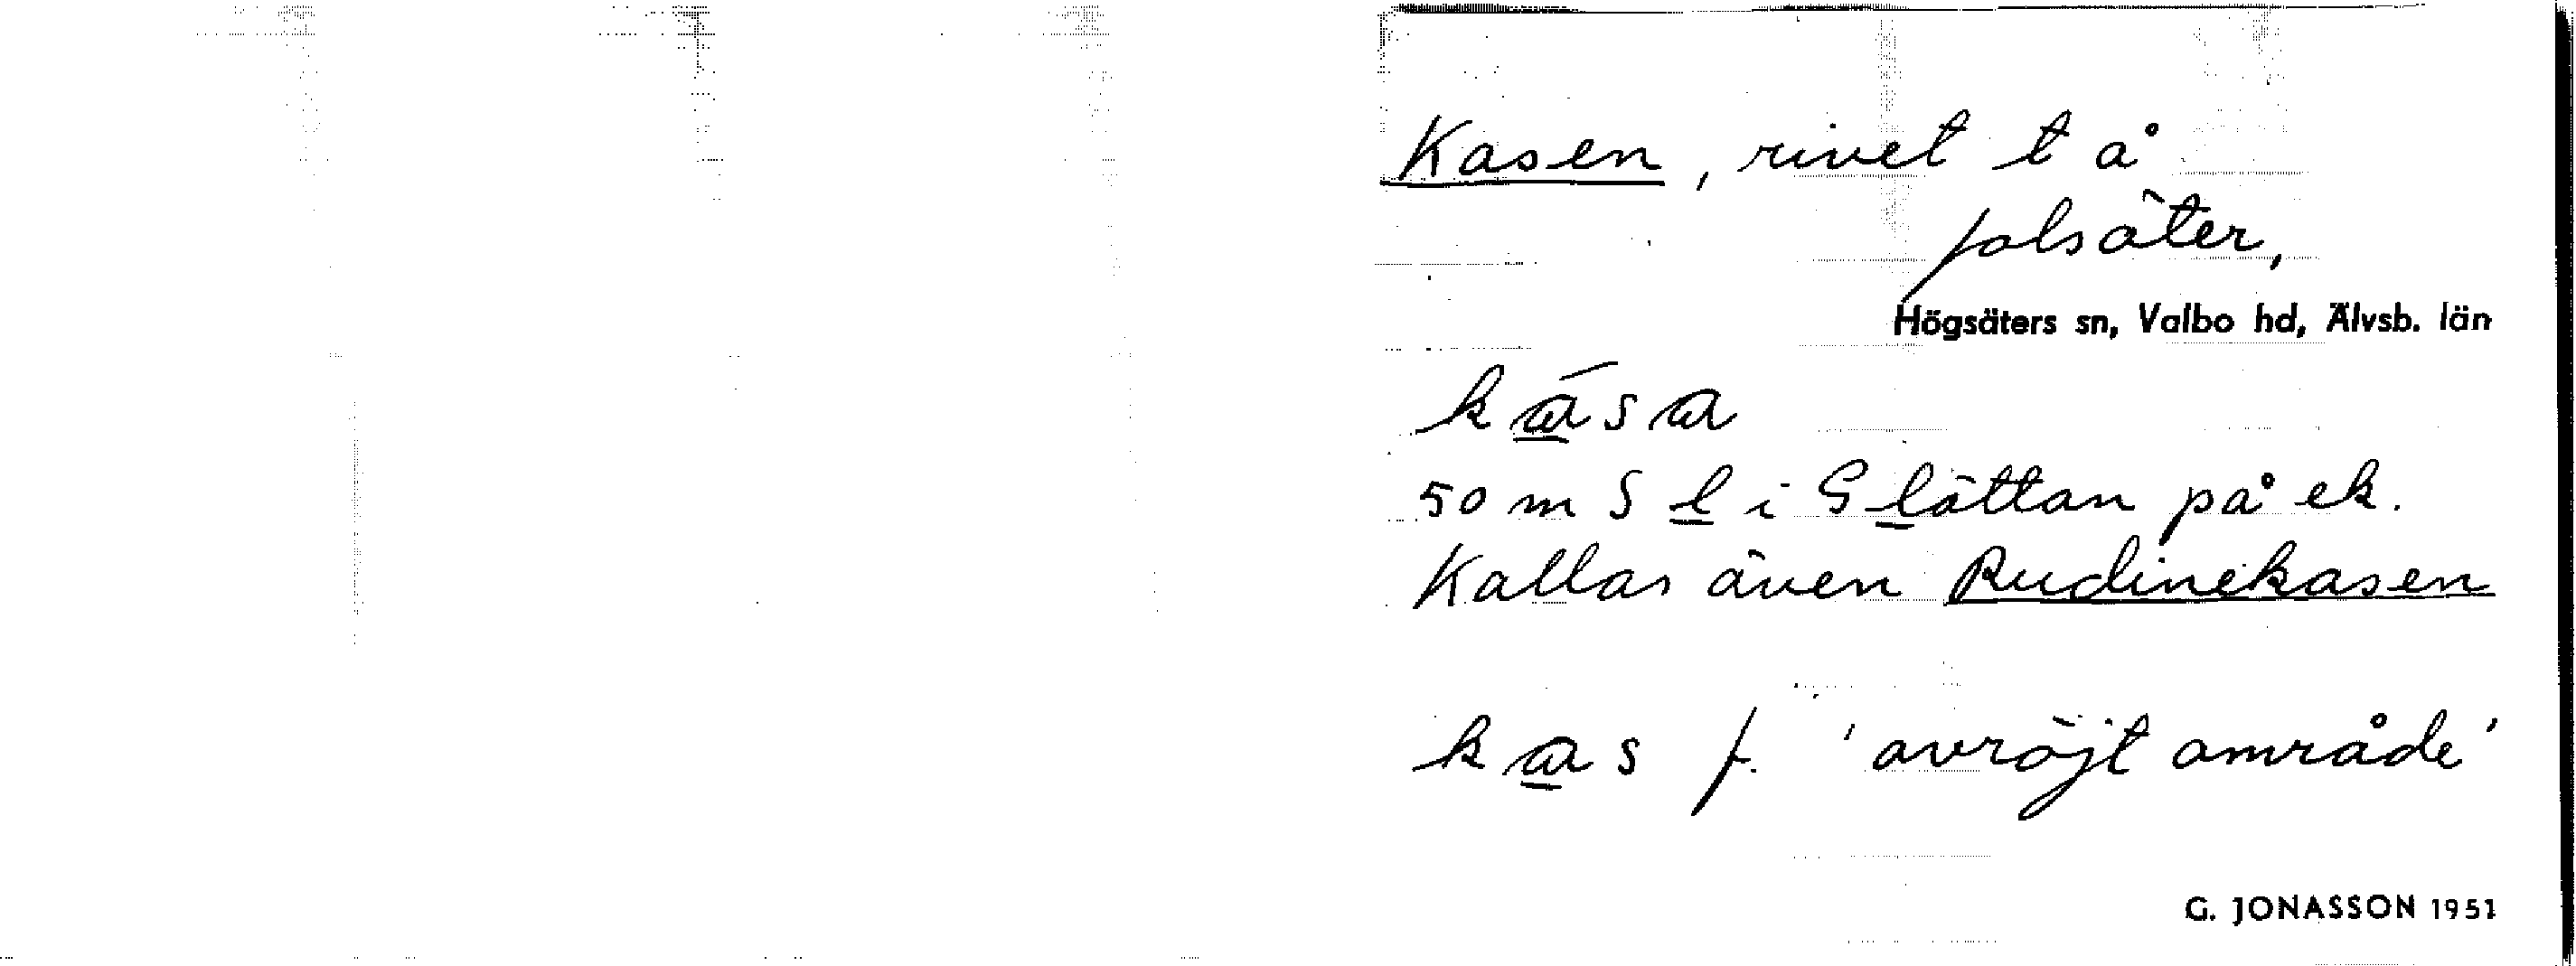 Kasen, rivet t å
jolsäter,
Högsäters sn, Valbo hd, Älvsb. län
kása
50 m S l i Slättan på ek.
Kallas även Rudinekasen
kas f. 'avröjt område'
G. JONASSON 1951